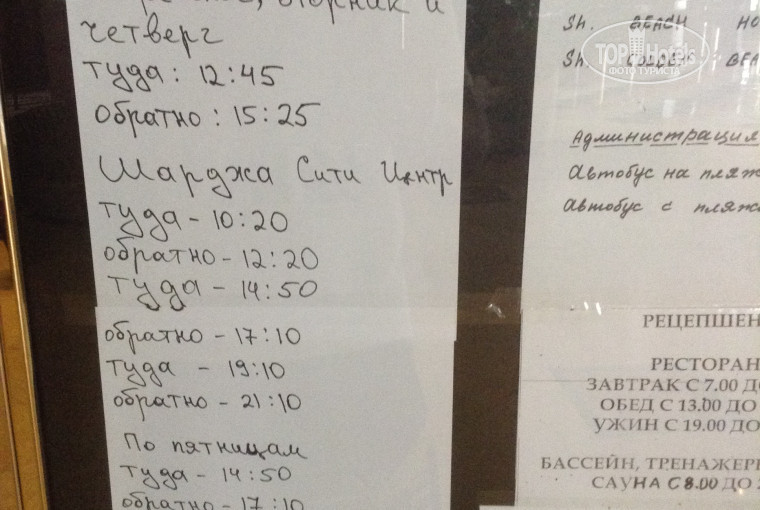 вторник и
четверг
туда: 12:45
обратно: 15:25
Шарджа Сити Центр
туда - 10:20
обратно - 12:20
туда - 14:50
обратно - 17:10
туда - 19:10
обратно - 21:10
По пятницам
туда - 14:50
обратно - 17:10
Sh. BEACH HO
Sh. GOLDEN BEA
TOP Hotels
ФОТО ТУРИСТА
Администрация
Автобус на пляж
Автобус с пляж
РЕЦЕПШЕН
РЕСТОРАН
ЗАВТРАК С 7.00 ДО
ОБЕД С 13.00 ДО
УЖИН С 19.00 ДО
БАССЕЙН, ТРЕНАЖЕР
САУНА С 8.00 ДО